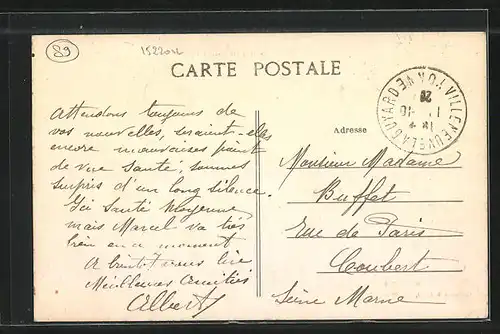 89
1522012
CARTE POSTALE
VILLENEUVE LA GUYARD YONNE
20
Adresse
Attendons toujours de
vos nouvelles, seraient-elles
encore mauvaises point
de vue santé, sommes
surpris d'un long silence.
Ici santé moyenne
mais Marcel va très
bien en ce moment
A bientôt vous lire
Meilleures Amitiés
Albert
Monsieur Madame
Buffet
rue de Paris
Coubert
Seine Marne